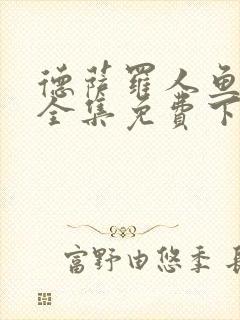 德萨罗人鱼
全集免费下
富野由悠季